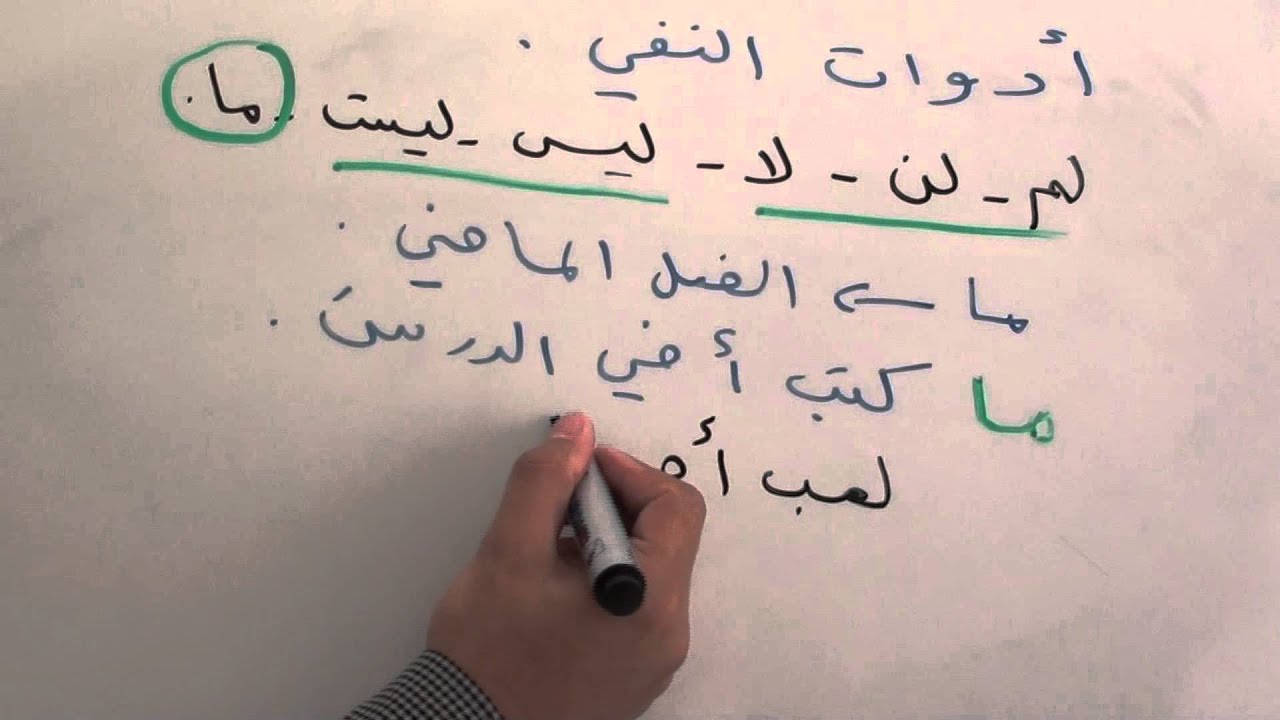 أدوات النفي .
لم - لن - لا - ليس - ليست - ما .
ما ← الفعل الماضي .
ما كتب أخي الدرسَ .
لعب